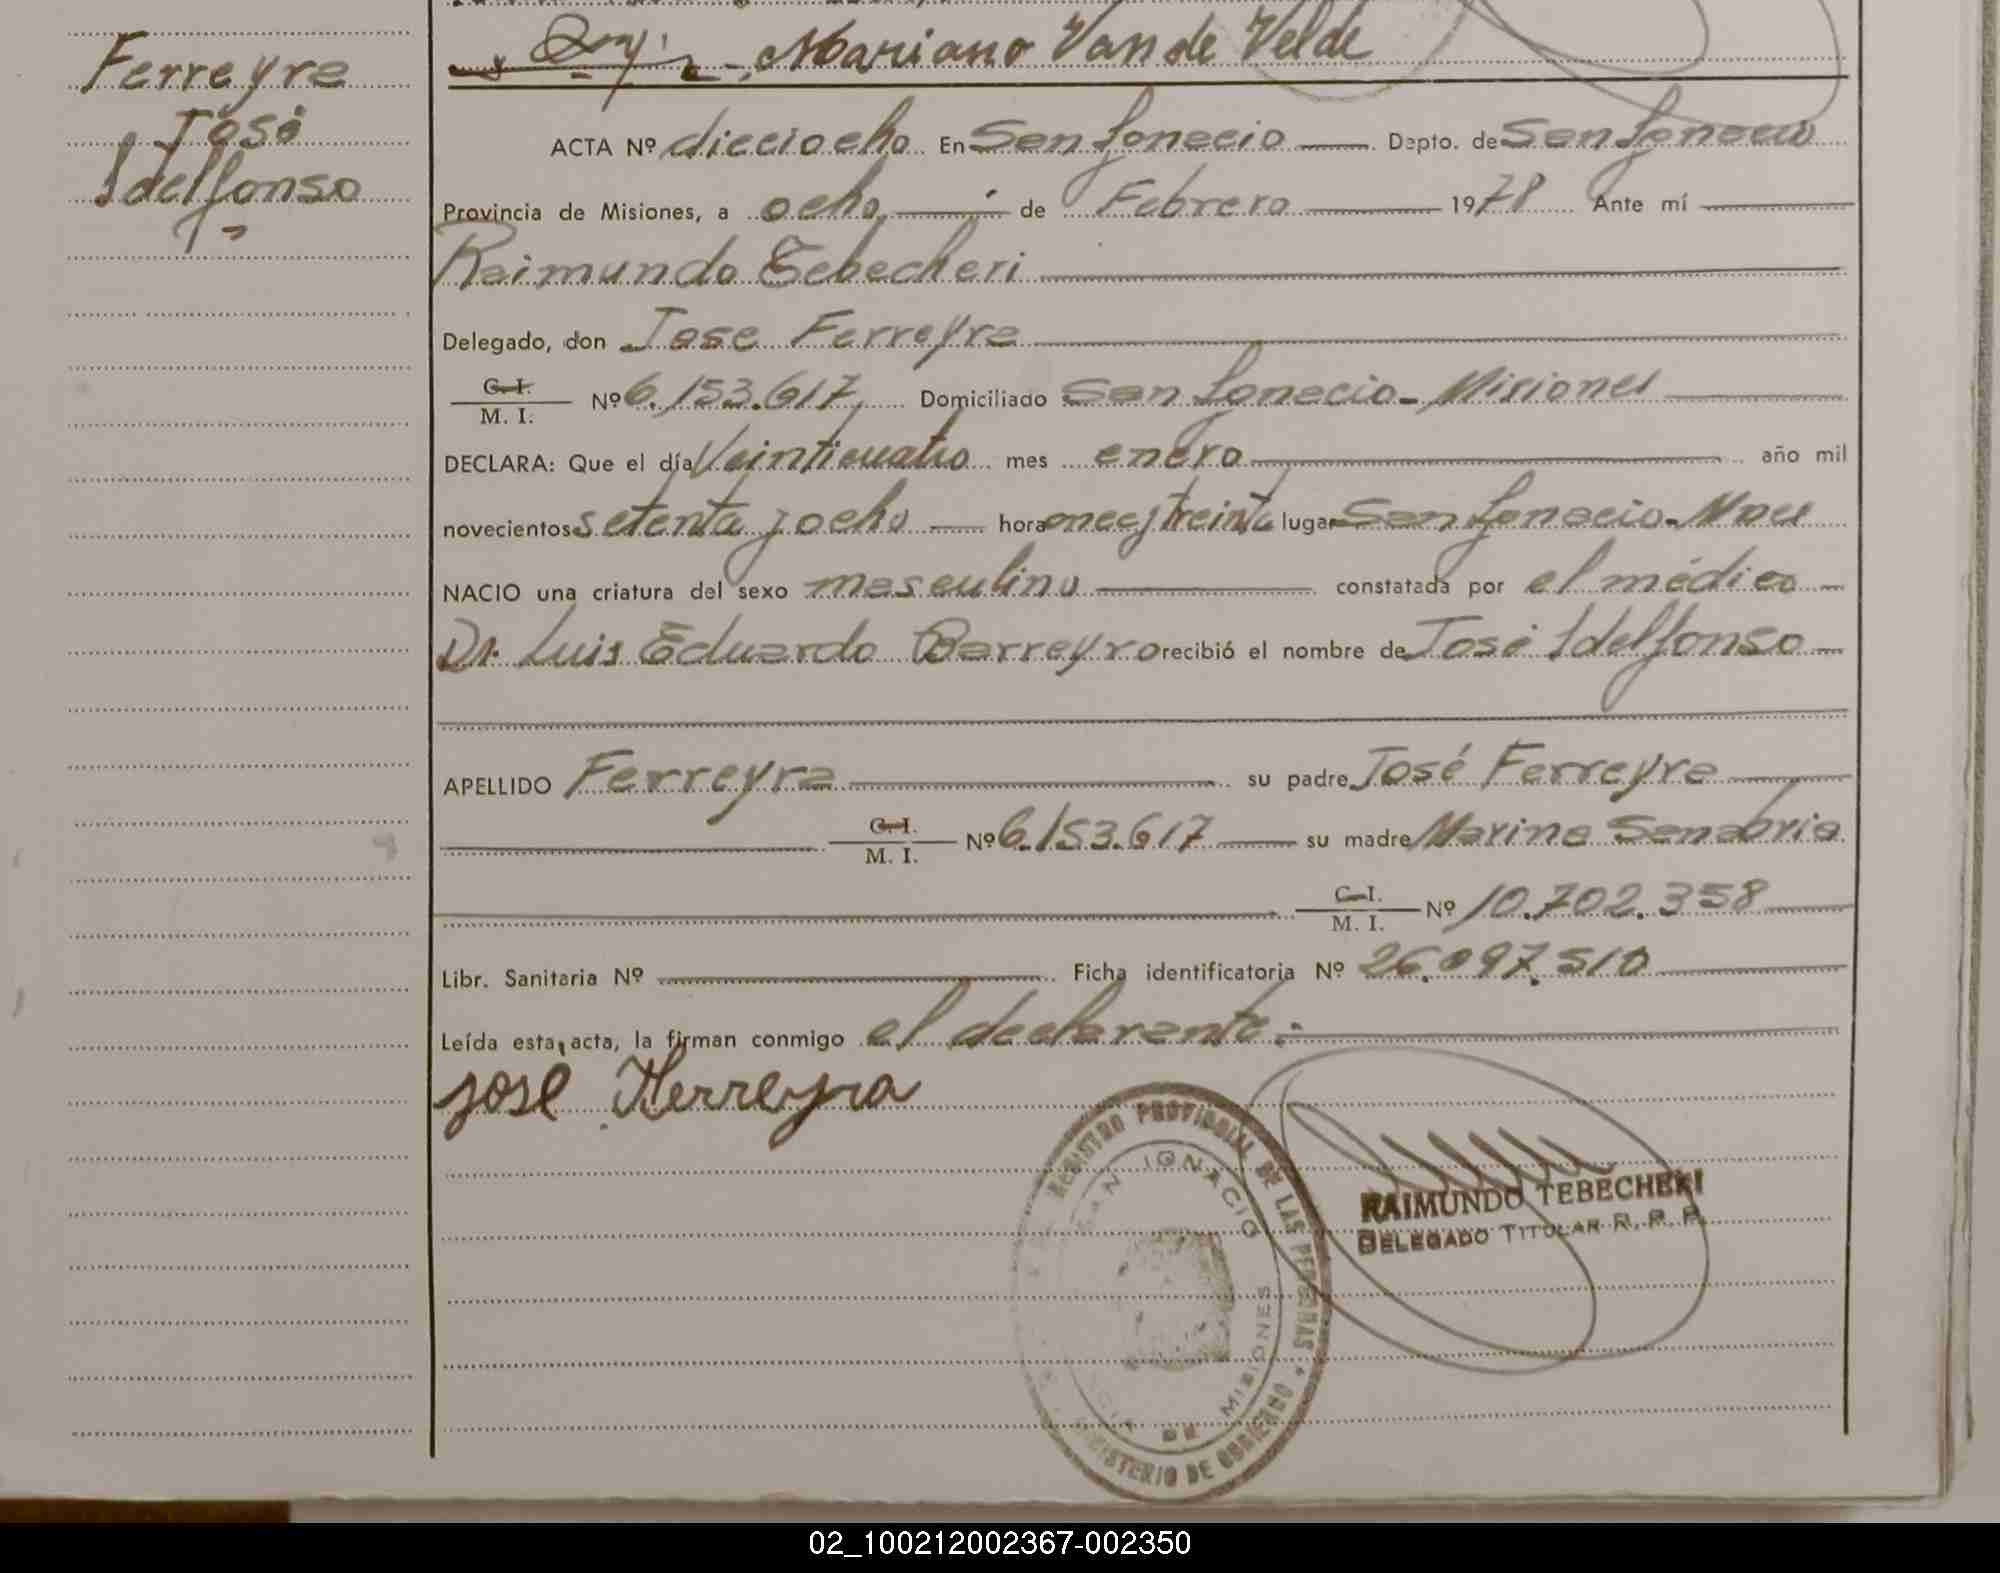 Mariano Van de Velde
Ferreyra
José
Ildelfonso
ACTA Nº dieciocho En San Ignacio Depto. de San Ignacio
Provincia de Misiones, a ocho de Febrero 1978 Ante mí
Raimundo Tebecheri
Delegado, don Jose Ferreyra
C. I.
M. I. Nº 6.153.617 Domiciliado San Ignacio - Misiones
DECLARA: Que el día Veinticuatro mes enero año mil
novecientos setenta y ocho hora once y treinta lugar San Ignacio - Mnes
NACIO una criatura del sexo masculino constatada por el médico
Dr. Luis Eduardo Barreyro recibió el nombre de José Ildelfonso
APELLIDO Ferreyra su padre José Ferreyra
C. I.
M. I. Nº 6.153.617 su madre Marina Sanabria
C. I.
M. I. Nº 10.702.358
Libr. Sanitaria Nº Ficha identificatoria Nº 26.097.510
Leída esta acta, la firman conmigo el declarante.
jose Ferreyra
REGISTRO PROVINCIAL DE LAS PERSONAS
SAN IGNACIO
DE MISIONES
MINISTERIO DE GOBIERNO
RAIMUNDO TEBECHERI
DELEGADO TITULAR R. P. P.
02_100212002367-002350